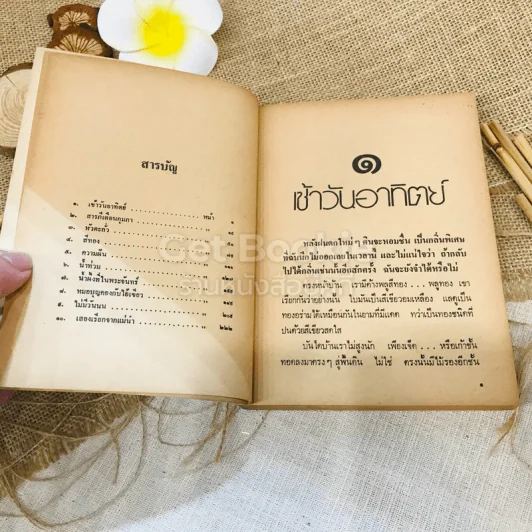 สารบัญ
หน้า
๑. เช้าวันอาทิตย์
๒. สารถึงเดือนกุมภา
๓. หัวตะกั่ว
๔. สีทอง
๕. ความฝัน
๖. น้ำท่วม
๗. น้ำผึ้งที่ในพระจันทร์
๘. หมอบุญคอง
๙. ไม่มีวันนน
๑๐. เสียงเรียกจากแม่น้ำ ๒๒๒
๑
เช้าวันอาทิตย์
หลังฝนตกใหม่ๆ ดินจะหอมชื่น เป็นกลิ่นพิเศษ
ที่ฉันนึกไม่ออกเลยในเวลานี้ และไม่แน่ใจว่า ถ้ากลับ
ไปได้กลิ่นเช่นนั้นอีกสักครั้ง ฉันจะยังจำได้หรือไม่
หน้าบ้าน เรามีค้างพลูสีทอง... พลูทอง เขา
เรียกกันว่าอย่างนั้น ใบมันเป็นสีเขียวอมเหลือง แลดูเป็น
ทองอร่ามได้เหมือนกันในยามที่มีแดด ทว่าเป็นทองชนิดที่
ปนด้วยสีเขียวสดใส
บันไดบ้านเราไม่สูงนัก เพียงเจ็ด... หรือเก้าขั้น
ทอดลงมาตรงๆ สู่พื้นดิน ไม่ใช่ ตรงนั้นมีไม้รองอีกชั้น
Get Book in
ร้านหนังสือ